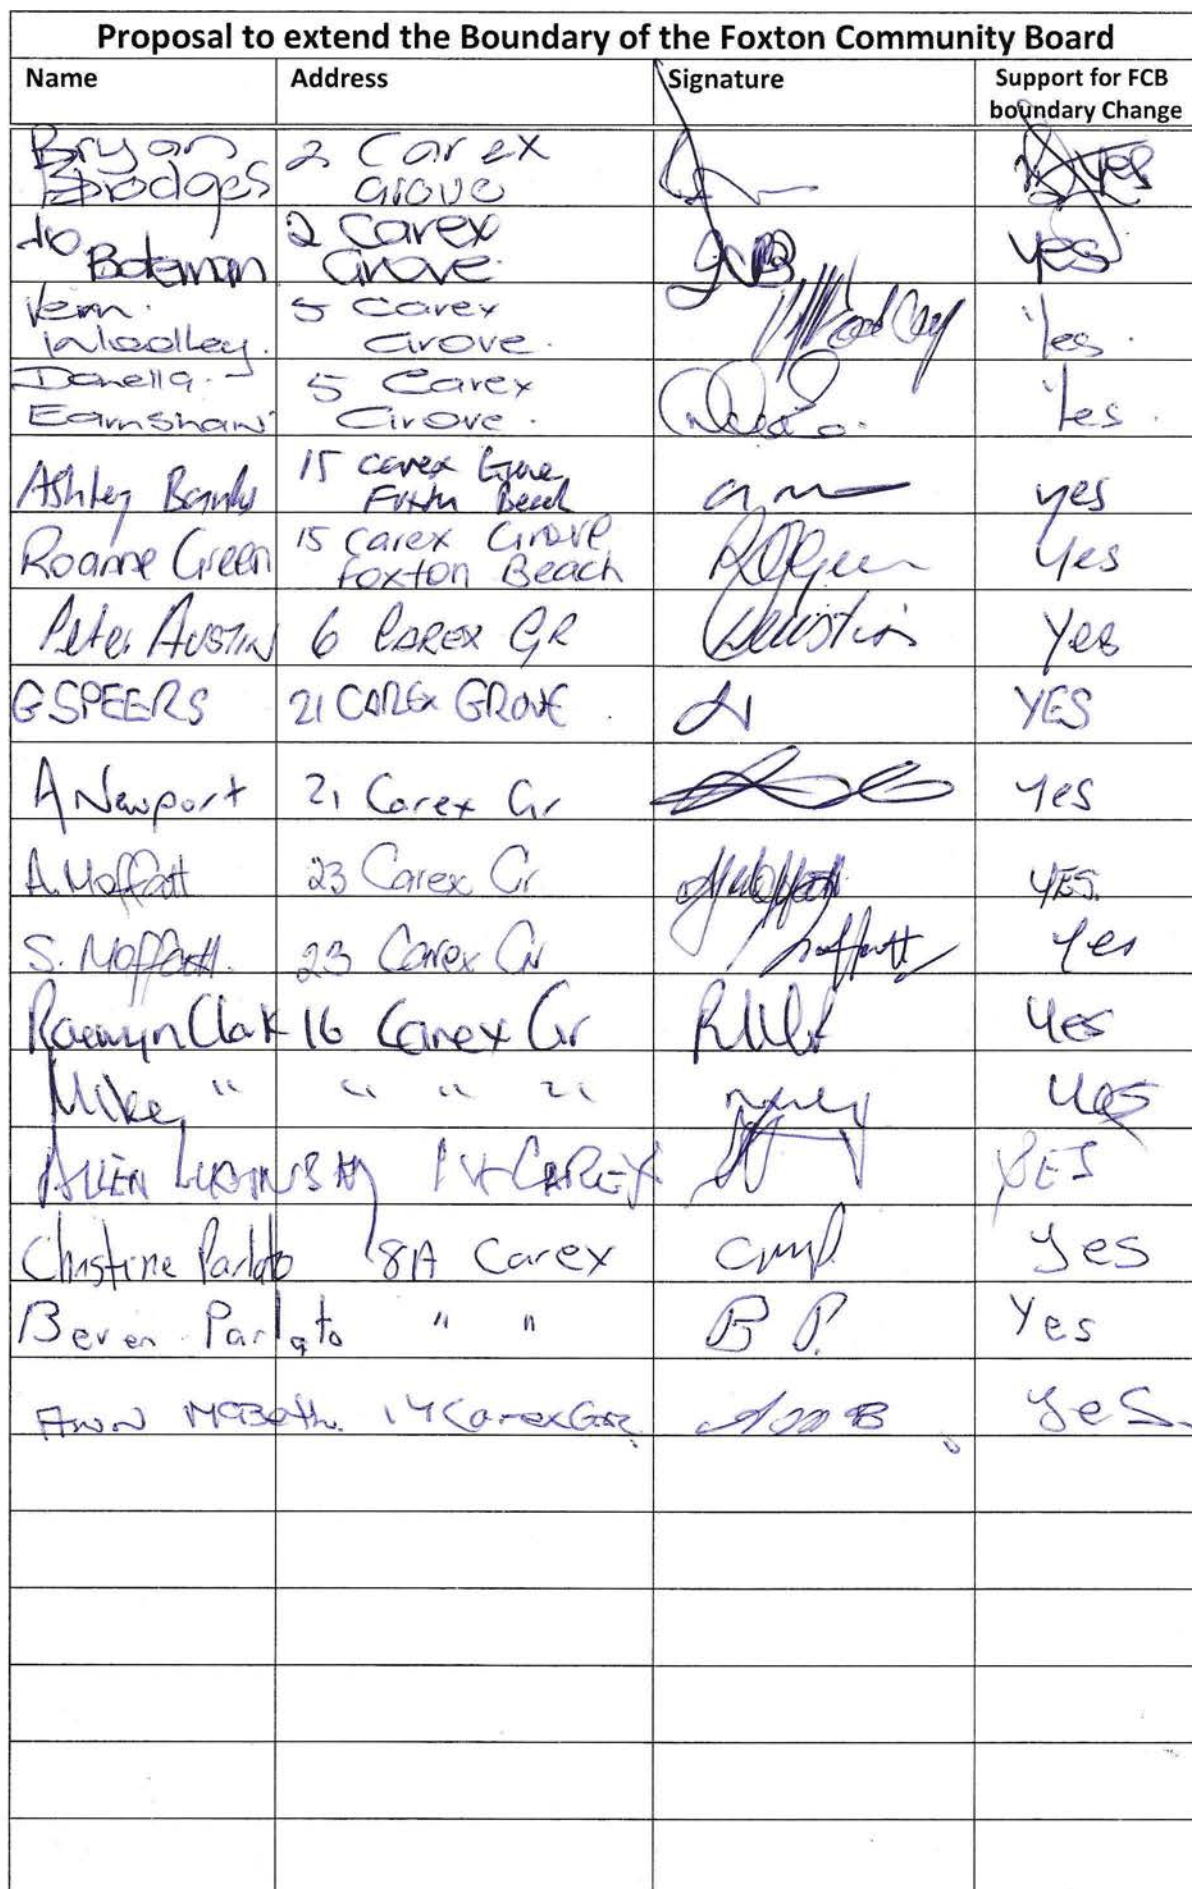 Proposal to extend the Boundary of the Foxton Community Board
Name Address Signature Support for FCB
boundary Change
Bryan 2 Carex
Bridges Grove yes
Jo 2 Carex
Bateman Grove. yes
Vern. 5 Carex
Woodley. Grove. Yes.
Danella. 5 Carex
Earnshaw Grove. Yes.
Ashley Banks 15 Carex Grove yes
Foxton Beach
Roanne Green 15 Carex Grove Yes
Foxton Beach
Peter AUSTIN 6 CAREX GR Yes
G SPEERS 21 CAREX GROVE. YES
A Newport 21 Carex Gr Yes
A. Moffatt 23 Carex Gr YES.
S. Moffatt. 23 Carex Gr Moffatt Yes
Raewyn Clark 16 Carex Gr Yes
Mike " " " " Yes
ALLEN CAREX YES
Christine Parlato 8A Carex Yes
Beven Parlato " " B P. Yes
Ann McBeth. 14 Carex Gre Yes.